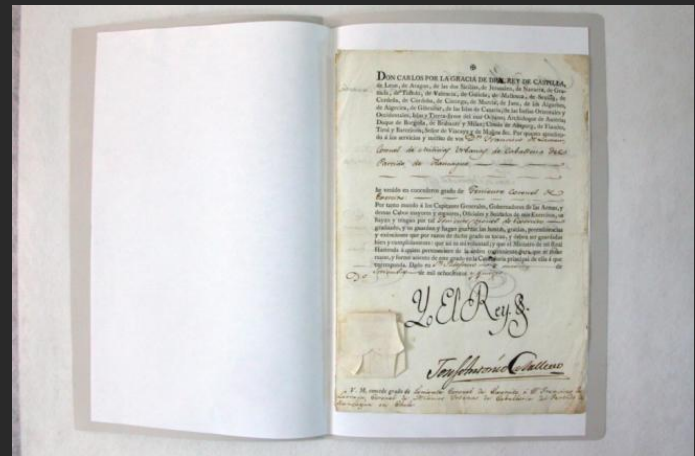 DON CARLOS POR LA GRACIA DE DIOS, REY DE CASTILLA,
de Leon, de Aragon, de las dos Sicilias, de Jerusalen, de Navarra, de Gra-
nada, de Toledo, de Valencia, de Galicia, de Mallorca, de Sevilla, de
Cerdeña, de Córdoba, de Córcega, de Murcia, de Jaen, de los Algarbes,
de Algeciras, de Gibraltar, de las Islas de Canaria, de las Indias Orientales y
Occidentales, Islas y Tierra-firme del mar Océano; Archiduque de Austria;
Duque de Borgoña, de Brabante y Milan; Conde de Abspurg, de Flandes,
Tirol y Barcelona; Señor de Vizcaya y de Molina &c. Por quanto
á los servicios y méritos de vos Dn. Francisco
de Milicias Urbanas de Caballeria del
Partido de
he venido en concederos grado de Teniente Coronel de
Exército.
Por tanto mando á los Capitanes Generales, Gobernadores de las Armas, y
demas Cabos mayores y menores, Oficiales y Soldados de mis Exércitos, os
hayan y tengan por tal Teniente Coronel de
graduado, y os guarden y hagan guardar las honras, gracias, preeminencias
y exênciones que por razon de dicho grado os tocan, y deben ser guardadas
bien y cumplidamente: que así es mi voluntad; y que el Ministro de mi Real
Hacienda á quien perteneciere dé la órden conveniente para que se tome
razon, y forme asiento de este grado en la Contaduría principal
corresponda. Dado en Sn.
de mil ochocientos y
Yo El Rey.
Josef Antonio Caballero
V. M. concede grado de Teniente Coronel de Exercito á D. Francisco
de Milicias Urbanas de Caballeria del Partido de
en Chile